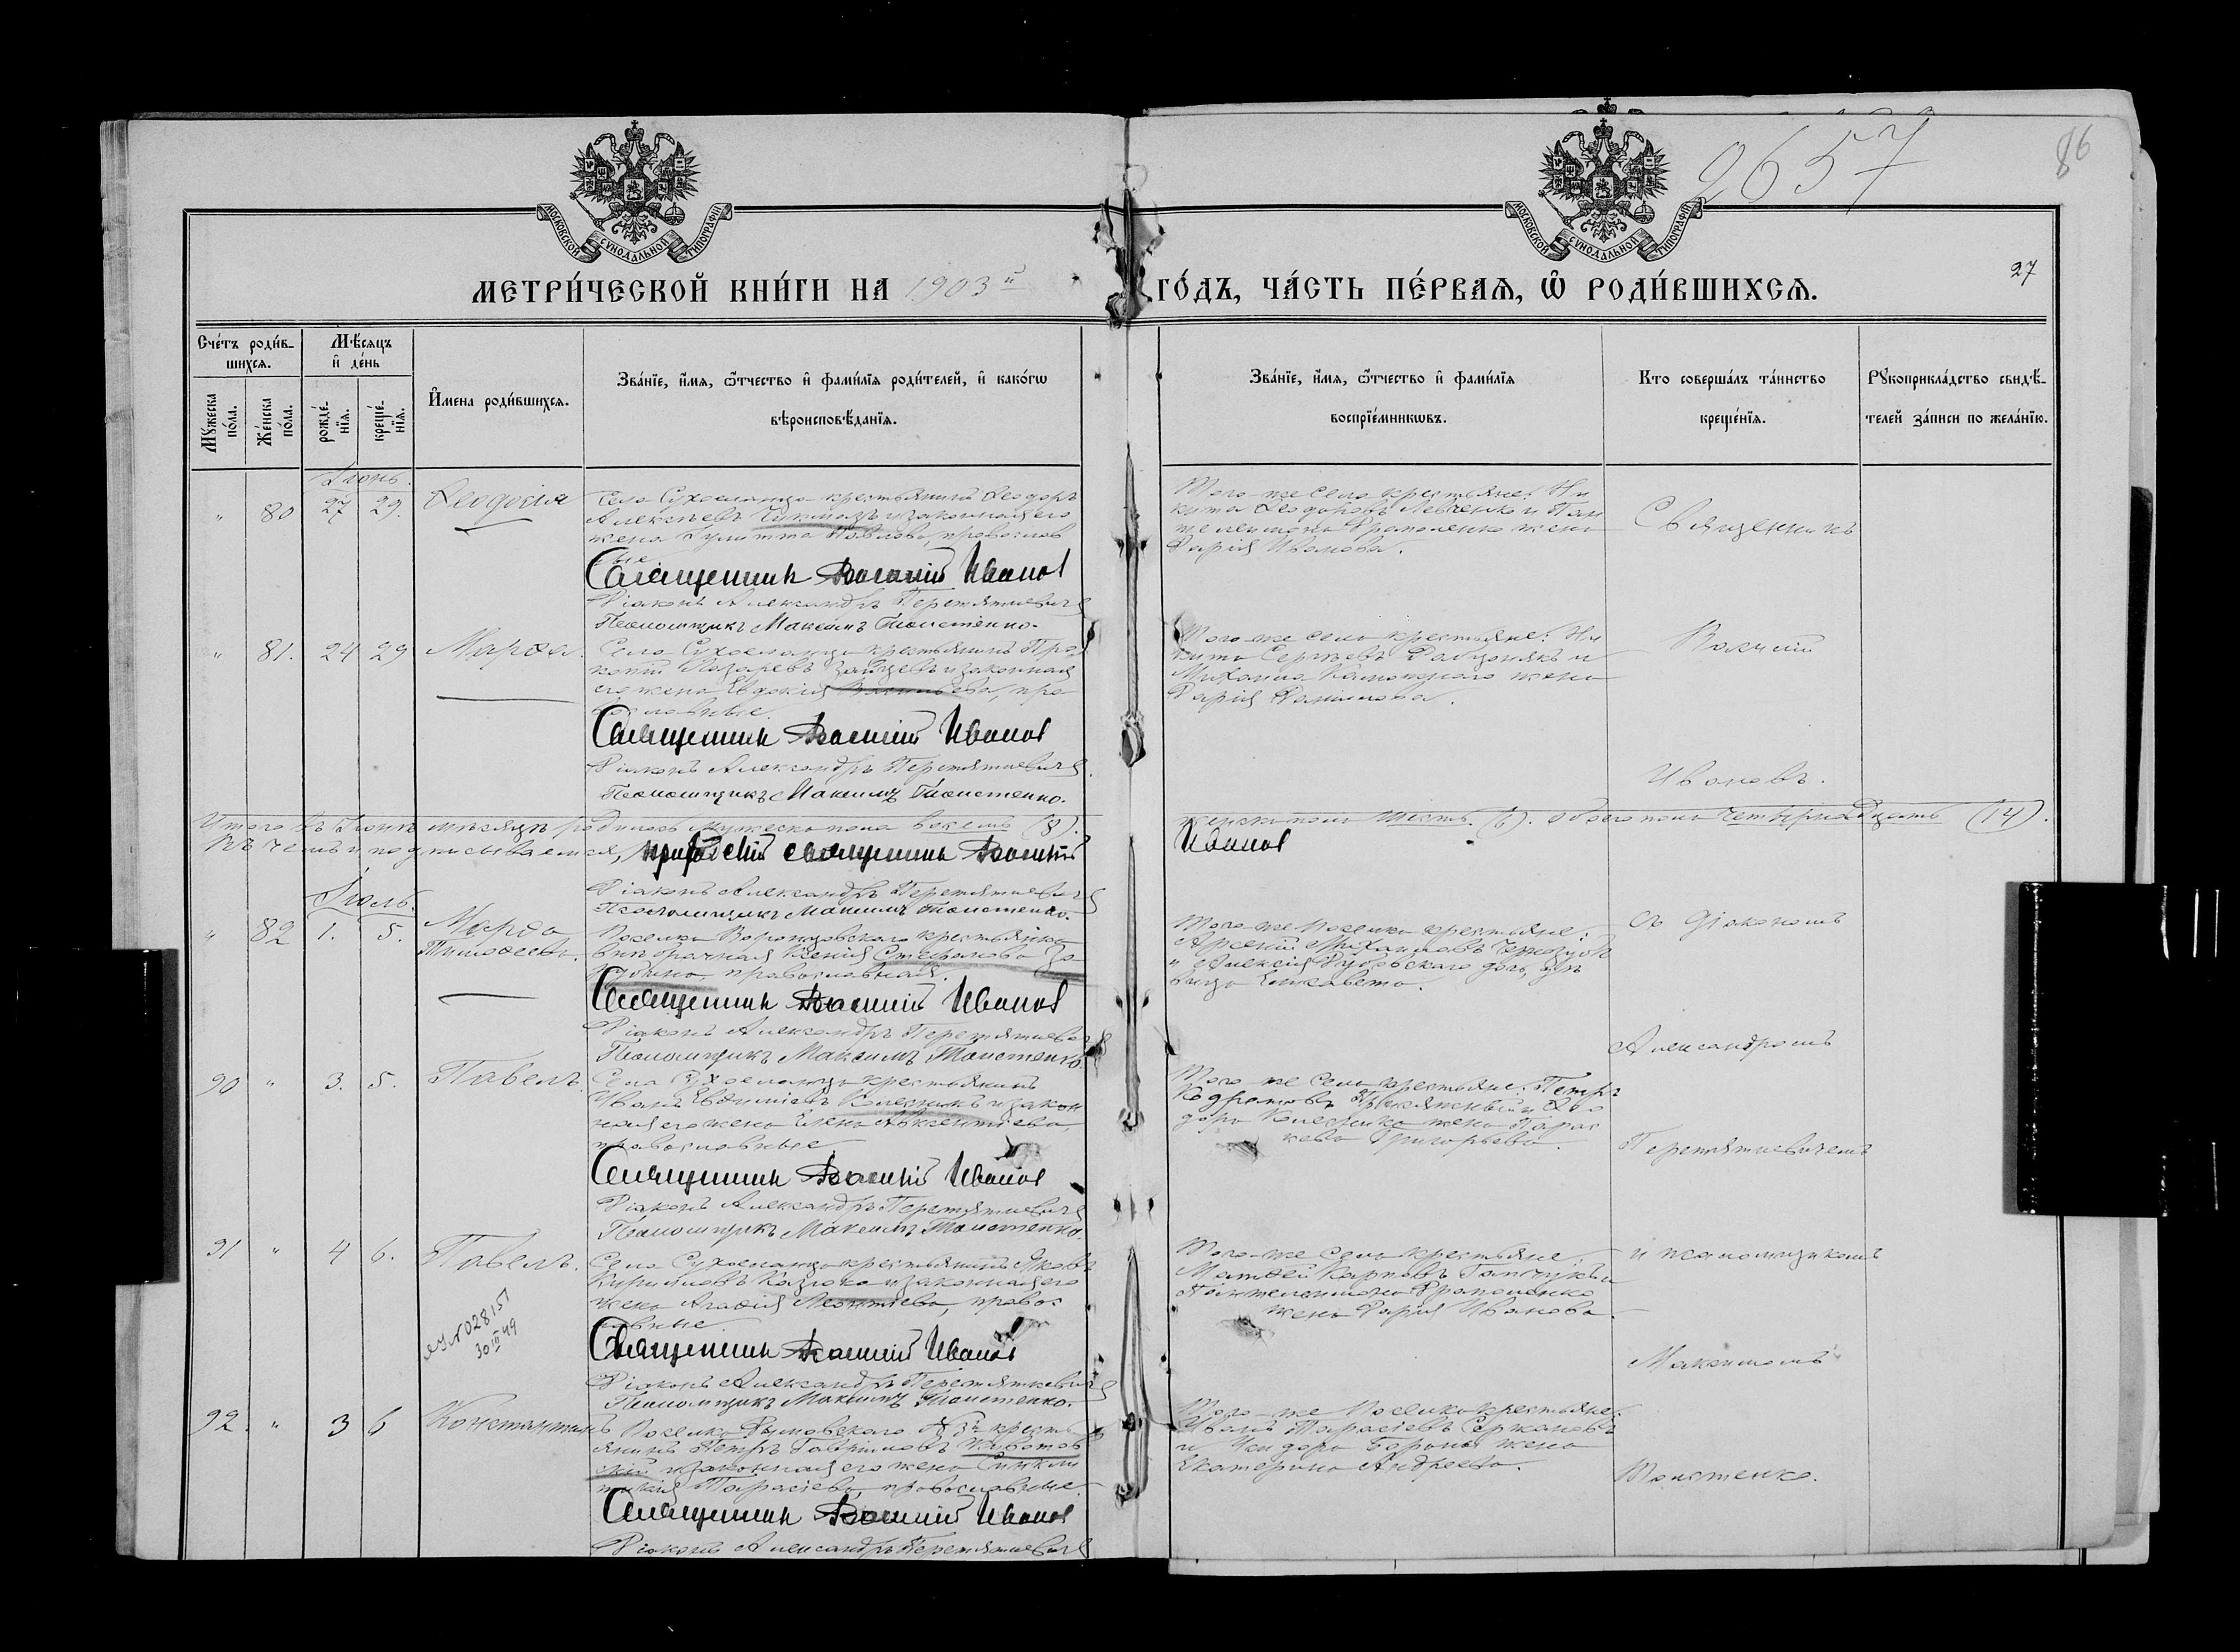 2657
86
МОСКОВСКОЙ СѴНОДАЛЬНОЙ ТИПОГРАФІИ
МОСКОВСКОЙ СѴНОДАЛЬНОЙ ТИПОГРАФІИ
МЕТРИ́ЧЕСКОЙ КНИ́ГИ НА 1903й ГО́ДЪ, ЧА́СТЬ ПЕ́РВАЯ, Ѡ РОДИ́ВШИХСЯ.
27
Сче́тъ роди́в-
шихся.
Мѣ́сяцъ
и҆ де́нь
Мꙋжеска по́ла.
Же́нска по́ла.
рожде́-нїѧ.
креще́-нїѧ.
И҆мена роди́вшихся.
Зва́нїе, и҆́мя, ѻ҆́тчество и҆ фами́лїя роди́телей, и҆ како́гѡ
вѣроисповѣ́данїя.
Зва́нїе, и҆́мя, ѻ҆́тчество и҆ фами́лїя
воспрїе́мникѡвъ.
Кто соверша́лъ та́инство
креще́нїя.
Рꙋкоприкла́дство свидѣ́-
телей за́писи по жела́нїю.
Іюнь.
" 80 27 29. Ѳеодосія
Села Сухоеланца крестьянинъ Ѳеодоръ
Алексѣевъ законная его
жена Іулитта Павлова, православ
ные
Священник Василий Иванов
Діаконъ Александръ Перетяткевичъ
Псаломщикъ Максимъ Толстенко.
Того-же села крестьяне: Ни
кита Ѳеодоровъ Левченко и Пан
телеимона жена
Дарія Иванова.
Священникъ
" 81. 24 29 Марѳа.
Села Сухоеланца крестьянинъ Про
копій Лазаревъ Зайцевъ и законная
его жена Евдокія Васильева, пра
вославные.
Священник Василий Иванов
Діаконъ Александръ Перетяткевичъ.
Псаломщикъ Максимъ Толстенко.
Того-же села крестьяне: Ни
кита Сергѣевъ и
Михаила жена
Дарія
Василій
Ивановъ.
Итого въ Іюнѣ мѣсяцѣ родилось мужеска пола восемь (8). женска пола шесть (6). обоего пола четырнадцать (14).
Въ чемъ и подписываемся, приходский священник Василий Иванов
Діаконъ Александръ Перетяткевичъ
Псаломщикъ Максимъ Толстенко.
Іюль.
" 82 1. 5. Марѳа
Тимоѳеева.
Поселка Воронцовскаго крестьянка
Ксенія Стефанова
православная.
Священник Василий Иванов
Діаконъ Александръ Перетяткевичъ
Псаломщикъ Максимъ Толстенко.
Того-же поселка крестьяне:
Арсеній Михаиловъ
и Алексія дочь, дѣ
вица Елисавета.
съ Діакономъ
Александромъ
90 " 3. 5. Павелъ.
Села Сухоеланца крестьянинъ
Иванъ Евѳиміевъ Колесникъ и закон
ная его жена Елена Авксентіева,
православные
Священник Василий Иванов
Діаконъ Александръ Перетяткевичъ
Псаломщикъ Максимъ Толстенко.
Того-же села крестьяне: Петръ
Кодратовъ и Ѳео
дора Колесника жена Парас
кева Григорьева.
Перетяткевичемъ
91 " 4 6. Павелъ.
028151
30 III 49
Села Сухоеланца крестьянинъ Яковъ
Кирилловъ и законная его
жена Агафія Леонтіева, право-
славные
Священник Василий Иванов
Діаконъ Александръ Перетяткевичъ
Псаломщикъ Максимъ Толстенко.
Того-же села крестьяне:
Матѳей Карповъ и
Пантелеимона
жена Дарія Иванова.
и псаломщикомъ
Максимомъ
92. " 3 6 Константинъ
Поселка кресть
янинъ Петръ Гавриловъ
и законная его жена
Тарасіева, православные.
Священник Василий Иванов
Діаконъ Александръ Перетяткевичъ
Того-же поселка крестьяне:
Иванъ Тарасіевъ
и Исидора жена
Екатерина Андреева.
Толстенко.